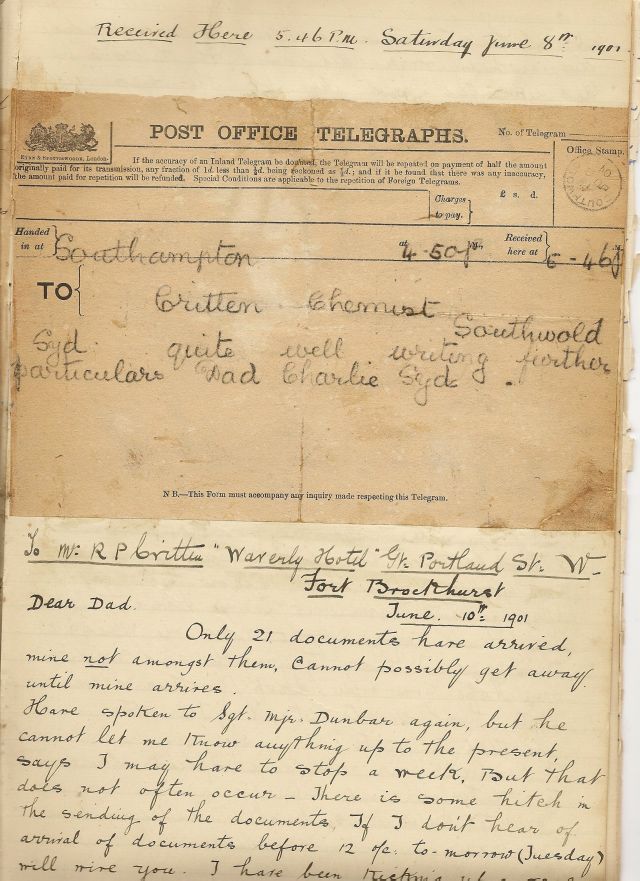 Received Here 5.46 P.M. Saturday June 8th 1901
EYRE & SPOTTISWOODE, London.
POST OFFICE TELEGRAPHS.
No. of Telegram
If the accuracy of an Inland Telegram be doubted, the Telegram will be repeated on payment of half the amount
originally paid for its transmission, any fraction of 1d. less than ½d. being reckoned as ½d.; and if it be found that there was any inaccuracy,
the amount paid for repetition will be refunded. Special Conditions are applicable to the repetition of Foreign Telegrams.
Office Stamp.
£ s. d.
Charges
to pay.
Handed
in at
Southampton
at
4.50 p
Received
here at
5-46 p
TO
Critten Chemist
Southwold
Syd quite well writing further
particulars Dad Charlie Syd.
N B.—This Form must accompany any inquiry made respecting this Telegram.
To Mr. R P Critten "Waverly Hotel" Gt. Portland St. W-
Fort Brockhurst
June. 10th 1901
Dear Dad.
Only 21 documents have arrived,
mine not amongst them, Cannot possibly get away
until mine arrives.
Have spoken to Sgt. Mjr. Dunbar again, but he
cannot let me know anything up to the present,
says I may have to stop a week, But that
does not often occur - There is some hitch in
the sending of the documents, If I don't hear of
arrival of documents before 12 o/c. to-morrow (Tuesday)
will wire you. I have been